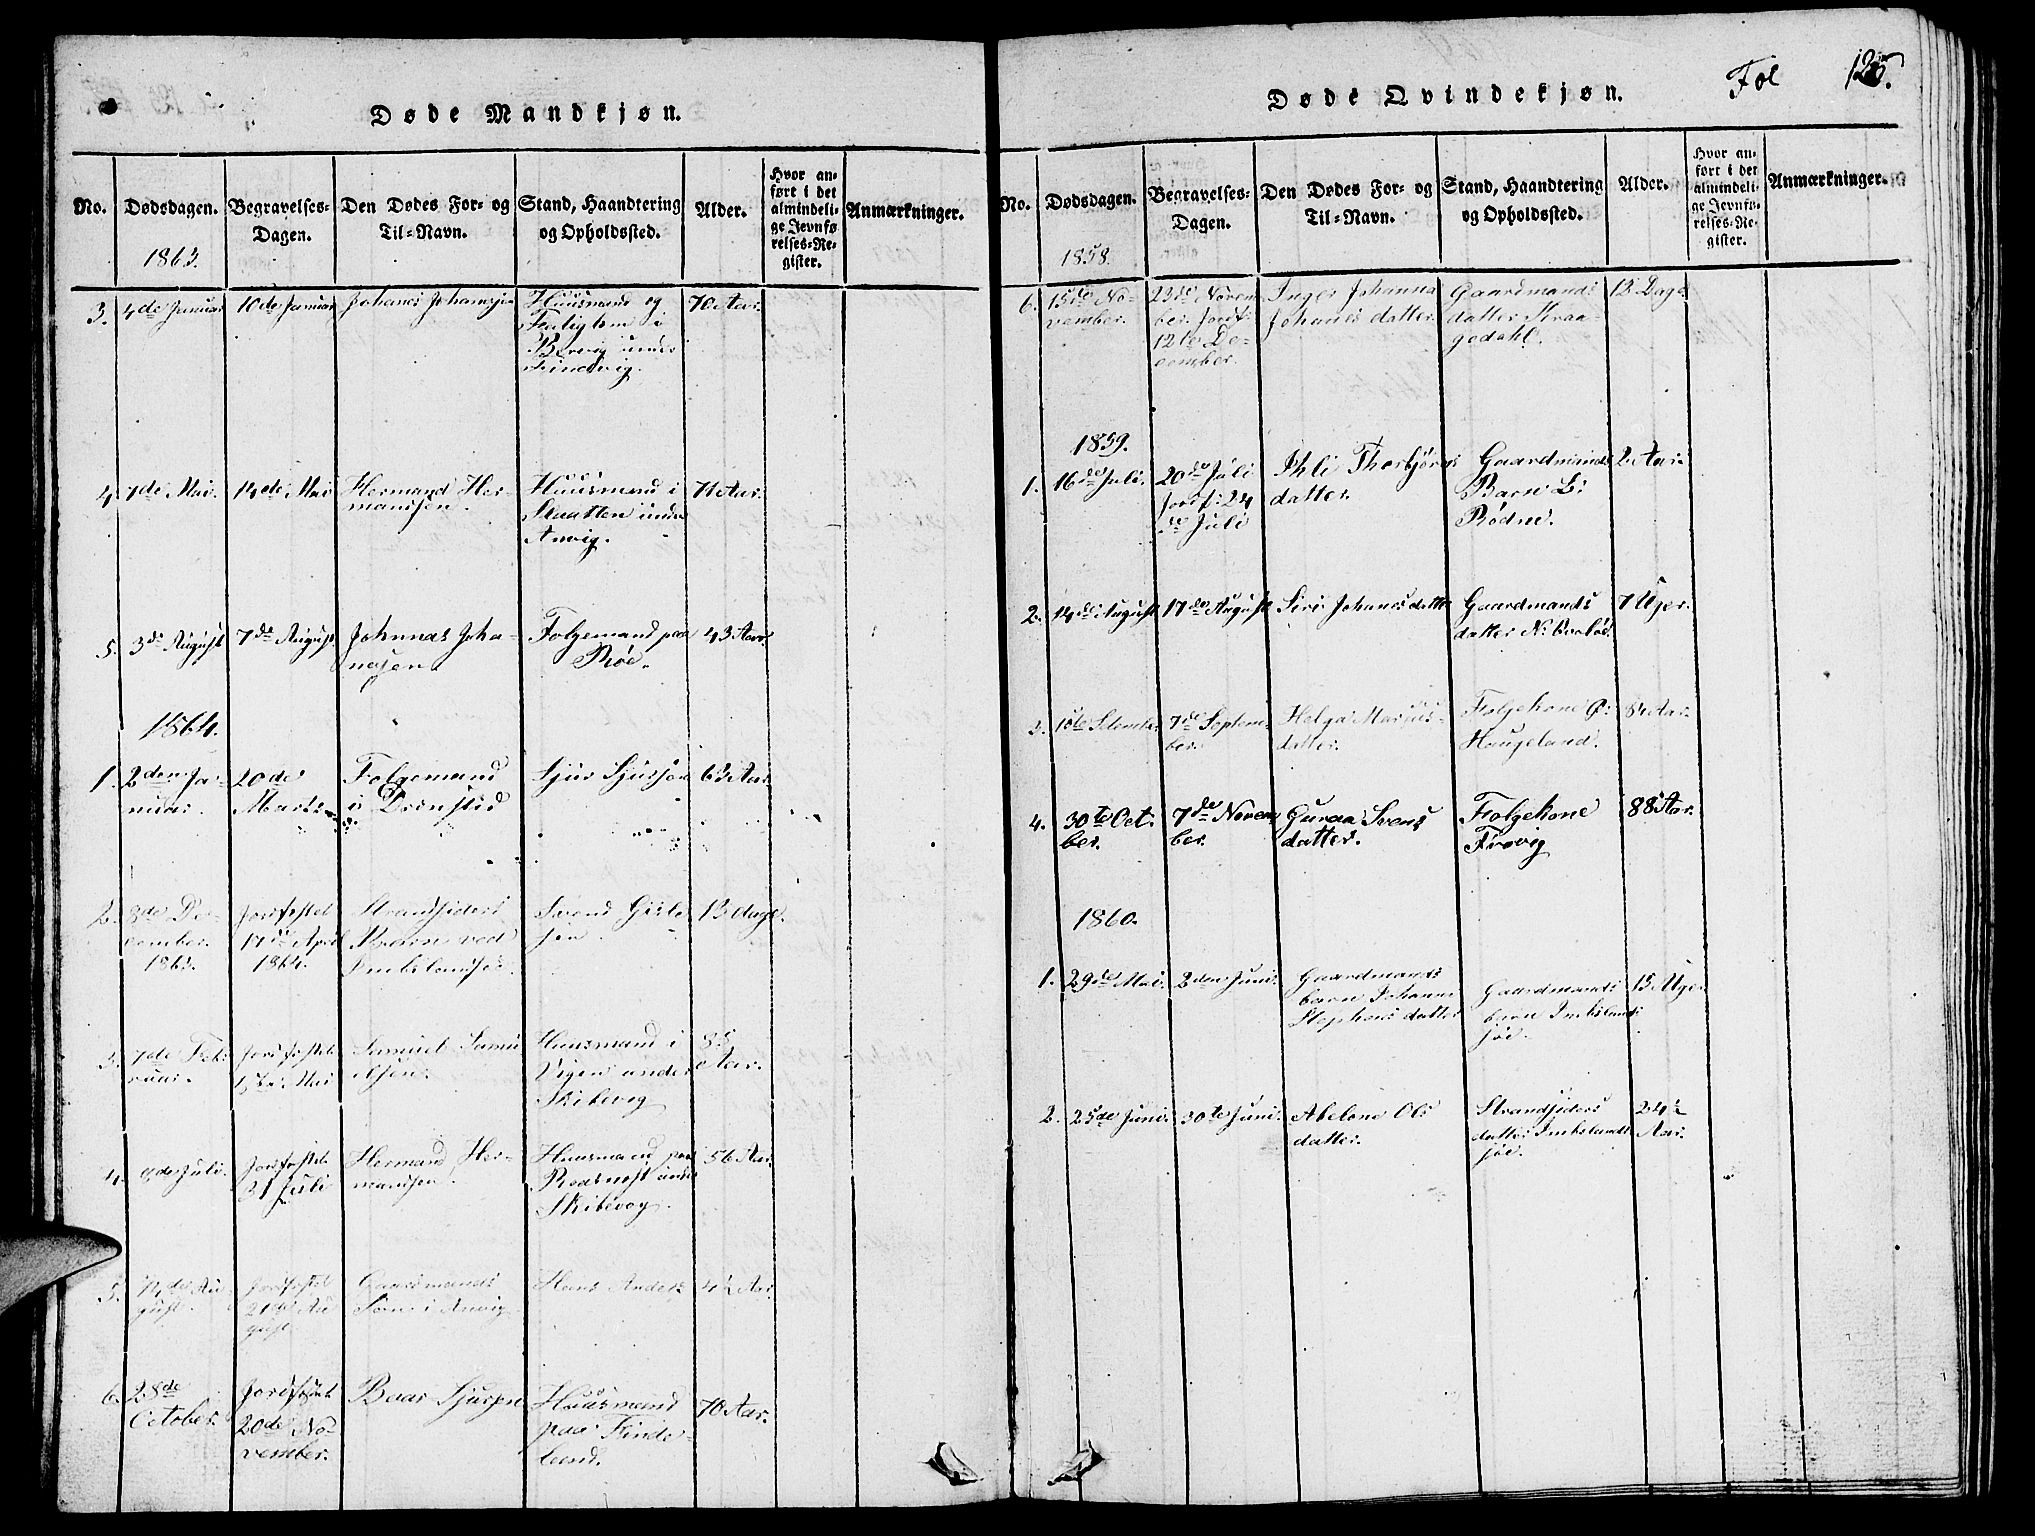 Døde Mandkjøn.
No.
Dødsdagen.
Begravelses-
Dagen.
Den Dødes For- og
Til-Navn.
Stand, Haandtering
og Opholdssted.
Alder.
Hvor an-
ført i det
almindeli-
ge Jevnfø
relses-Re-
gister.
Anmærkninger.
1863.
3.
4de Januar
10de Januar
Johanes Johannes
Huusmand og
Fatiglem i
under
70 Aar.
4.
7de Mai.
14de Mai
Hermand Her-
mandsen.
Huusmand i
Skaatten under
Anvig.
71 Aar.
5.
3de August
7de August
Johannas Joha-
nesen
Folgemand paa
Røe.
43 Aar.
1864.
1.
2den Ja-
nuar.
20de
Marts
Folgemand
i
Sjur Sjursen
63 Aar.
2.
8de De-
cember.
1863.
Jordfæstet
17de April
1864.
Strandsiders
Barn ved
Imbslandsjø.
Svend Gisle
sen
13 dage.
3.
7de Feb-
ruar.
Jordfæstet
Mai
Samuel Samu
elsen.
Huusmand i
Vigen under
Skibevog
85
Aar.
4.
9de Juli.
Jordfæstet
31 Juli
Hermand Her-
mandsen.
Huusmand paa
under
Skibevog.
56 Aar.
5.
14de Au
gust.
Jordfæstet
21de Au
gust
Gaardmands
Søn i Anvig
Hans Anders
Aar.
6.
28de
October.
Jordfæstet
20de No-
vember.
Baar Sjursen
Huusmand
paa Finde-
70 Aar.
Døde Qvindekjøn.
Fol 126.
No.
Dødsdagen.
Begravelses-
Dagen.
Den Dødes For- og
Til-Navn.
Stand, Haandtering
og Opholdssted.
Alder.
Hvor an-
ført i det
almindeli-
ge Jevnfø-
relses-Re-
gister.
Anmærkninger.
1858.
6.
15de No-
vember.
23de Novem
ber. Jordf:
12te De-
cember.
Inger Johanna
Johanes datter
Gaardmands
datter Kraa-
gedahl.
13 Dage.
1859.
1.
16de Juli.
20de Juli
Jordf: 24
de Juli
Thorbjørns
datter.
Gaardmands
Barn L:
Rødne.
2 Aar.
2.
14de August
17de August
Siri Johanes datter
Gaardmands
datter N:
7 Uger.
3.
7de Septem-
ber.
Helga
datter.
Folgekone Ø:
Haugeland.
84 Aar.
4.
30te Oct.
ber.
7de Novem
ber.
Guraa Svens
datter.
Folgekone
88 Aar.
1860.
1.
29de Mai.
2den Juni.
Gaardmands
barn Johanne
Stephens datter
Gaardmands
barn Imbsland
sjø.
15 Uger
2.
25de Juni.
30te Juni.
Abelone Ols
datter.
Strandsiders
datter Imbslands
sjø.
Aar.